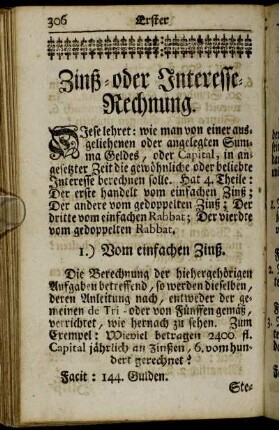 306 Erster
Zinß-oder Interesse-
Rechnung.
Diese lehret: wie man von einer aus-
geliehenen oder angelegten Sum-
ma Geldes, oder Capital, in an-
gesetzter Zeit die gewöhnliche oder beliebte
Interesse berechnen solle. Hat 4. Theile:
Der erste handelt vom einfachen Zinß;
Der andere vom gedoppelten Zinß; Der
dritte vom einfachen Rabbat; Der vierdte
vom gedoppelten Rabbat.
1.) Vom einfachen Zinß.
Die Berechnung der hiehergehörigen
Aufgaben betreffend, so werden dieselben,
deren Anleitung nach, entweder der ge-
meinen de Tri - oder von Fünffen gemäß,
verrichtet, wie hernach zu sehen. Zum
Exempel: Wieviel betragen 2400. fl.
Capital jährlich an Zinßen, 6. vom hun-
dert gerechnet?
Facit: 144. Gulden.
Ste-